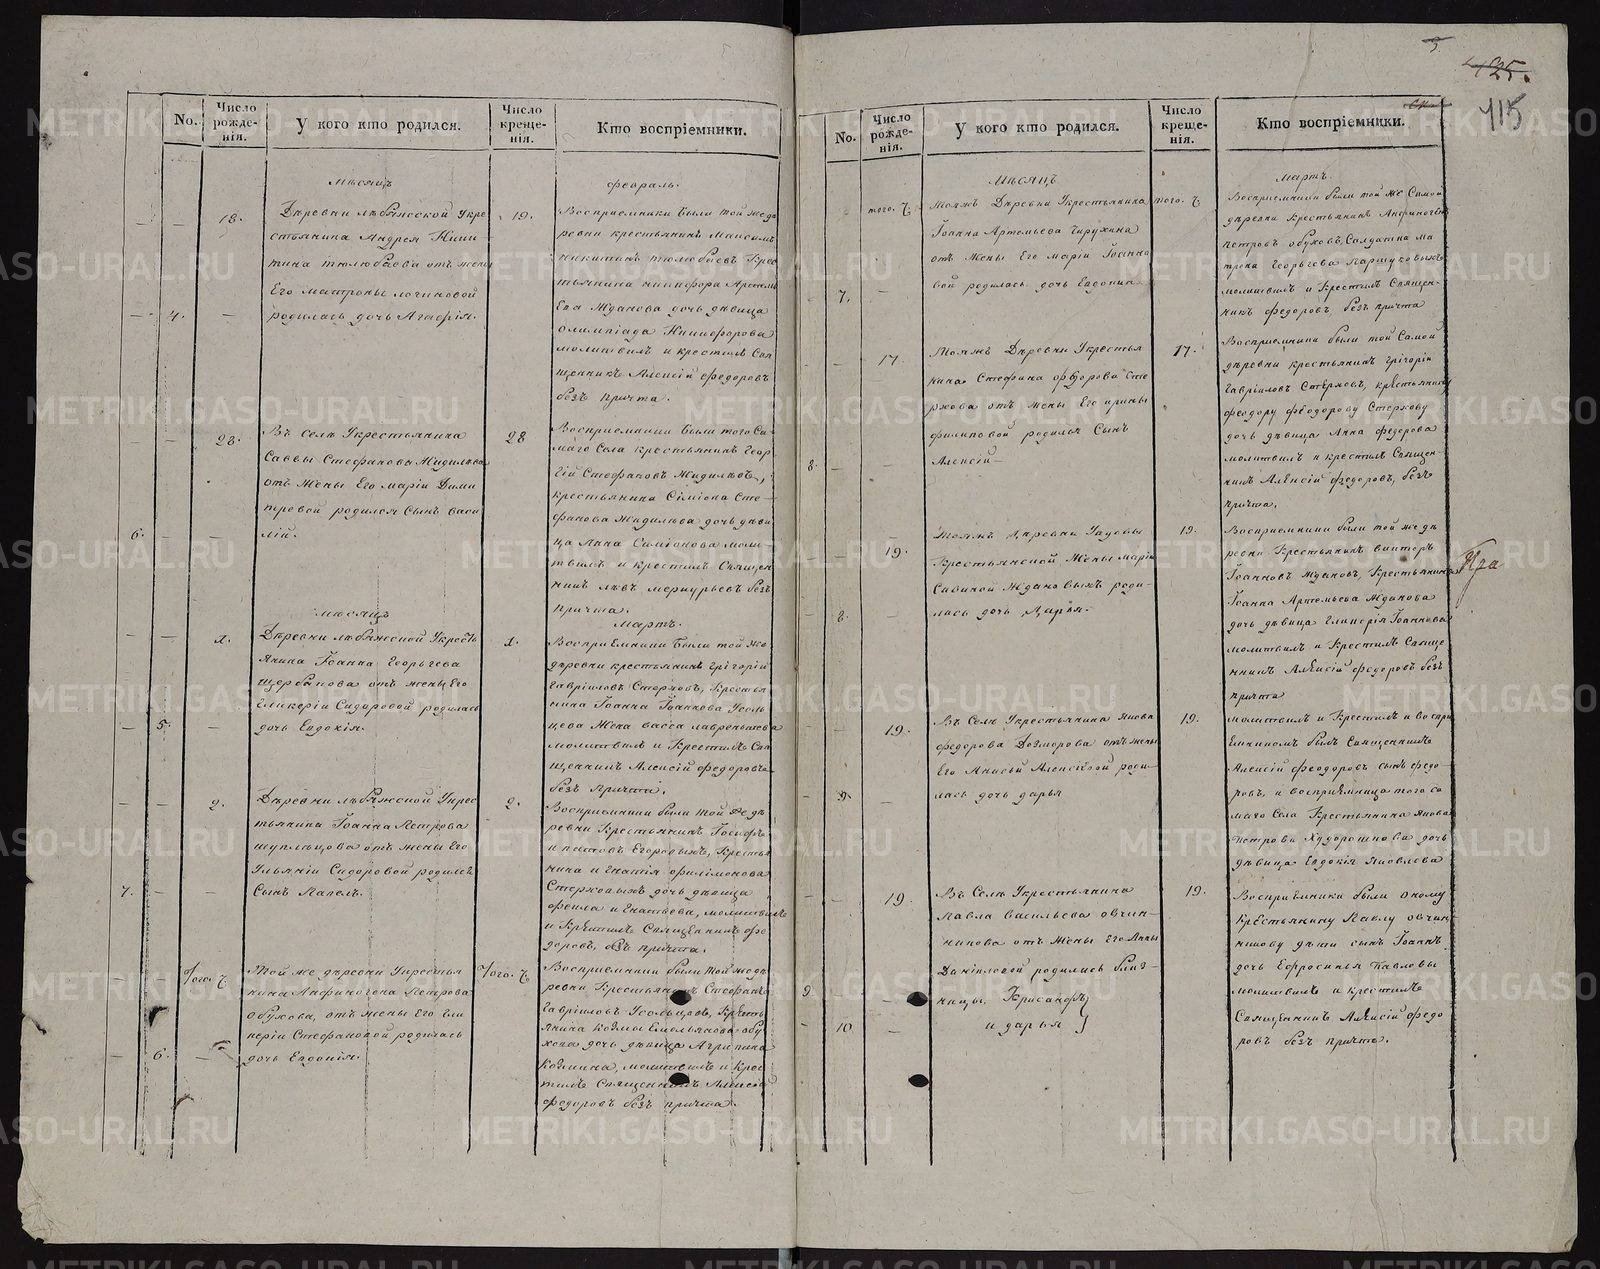 No.
Число рожде-нія.
У кого кто родился.
Число креще-нія.
Кто воспріемники.
мѣсяцъ
февраль.
18.
Деревни лебяжской укре
стьянина Андрея Ники
тина тюлюбаева отъ жены
Его матроны логиновой
4.
родилась дочь Агафія.
19.
Восприемники были той же де
ревни крестьянинъ Максимъ
никитинъ тюлюбаевъ Крес
тьянина никифора Артемь
Ева Жданова дочь дѣвица
олимпіада Никифорова
молитвилъ и крестилъ Свя
щенникъ Алексій федоровъ
безъ причта.
28.
Въ селѣ Укрестьянина
Саввы Стефанова Жидилева
отъ Жены Его маріи Дими
тревой родился Сынъ васи
6.
лій.
28
Восприемники были того Са
маго Села крестьянинъ Геор
гій Стефановъ Жидилевъ,
крестьянина Сіміона Сте
фанова Жидилева дочь дѣви
ца Анна Симіонова моли
твилъ и крестилъ Священ
никъ левъ меркурьевъ безъ
причта.
мѣсяцъ
Мартъ.
1.
Деревни лебяжской укресть
янина Іоанна Георьгева
щербакова отъ жены Его
Гликеріи Сидоровой родилась
5.
дочь Евдокія.
1.
Восприемники были той же
деревни крестьянинъ григорій
гавріиловъ Стерховъ, Крестья
нина Іоанна Іоаннова Усоль
цева Жена васса лаврентьева
молитвилъ и Крестилъ Свя
щенникъ Алексій федоровъ
безъ причта.
2.
Деревни лебяжской укрес
тьянина Іоанна Петрова
шуплецова отъ жены Его
Ульяніи Сидоровой родилсѧ
7.
Сынъ Павелъ.
2.
Восприемники были той же де
ревни Крестьянинъ Іосифъ
Крестья
нина игнатія филімонова
Стерховыхъ дочь дѣвица
фекла игнатьева, молитвилъ
и Крѣстилъ Священникъ фе
доровъ, безъ причта.
того. ч
Той же деревни укрестья
нина Анфиногена Петрова
обухова, отъ жены Его Гли
керіи Стефановой родилась
6.
дочь Евдокія.
того. ч
Восприемники были той же де
ревни Крестьянинъ Стефанъ
гавріиловъ Усольцовъ, Кресть
янина козмы Емельянова обу
хова дочь дѣвица Агрипина
козмина, молитвилъ и Крес
тилъ Священникъ Алексій
федоровъ безъ причта.
3.
425.
415
No.
Число рожде-нія.
У кого кто родился.
Число креще-нія.
Кто воспріемники.
мѣсяцъ
мартъ.
того. ч
Тояжъ Деревни Укрестьянина
Іоанна Артемьева Чирухина
отъ Жены Его маріи Іоанно
7.
вой родилась дочь Евдокия.
того. ч
Восприемники были той же Самой
деревни крестьянинъ Анфиногенъ
петровъ обуховъ, Солдатка ма
трона Георьгева Паршуковыхъ
молитвилъ и Крестилъ Священ
никъ федоровъ, безъ причта
17.
Тояжъ Деревни Укрестья
нина Стефана феодорова Сте
рхова отъ жены Его ирины
филиповой родился Сынъ
8.
Алексій
17.
Восприемники были той Самой
деревни крестьянинъ григорій
гавріиловъ Стерховъ, крестьянина
феодору феодорову Стерхову
дочь дѣвица Анна федорова
молитвилъ и крестилъ Священ
никъ Алексій федоровъ, безъ
причта.
19.
Тояжъ Деревни Удовы
Крестьянской Жены маріи
Савиной Ждановыхъ роди
8.
лась дочь Дарья.
19.
Восприемники были той же де
ревни Крестьянинъ викторъ
Іоанновъ Ждановъ, Крестьянина
Іоанна Артемьева Жданова
дочь дѣвица Гликерія Іоаннова
молитвилъ и Крестилъ Свяще
нникъ Алексій федоровъ безъ
причта
19.
Въ Селѣ Укрестьянина якова
федорова Дозморова отъ жены
Его Анисьи Алексіевой роди
9.
лась дочь дарья
19.
молитвилъ и Крестилъ и воспри
Емникомъ былъ Священникъ
Алексій феодоровъ сынъ федо
ровъ, и восприемница того са
маго Села Крестьянина якова
петрова Худорошкова дочь
дѣвица Евдокія яковлова
19.
Въ Селѣ Укрестьянина
Павла васильева овчин
никова отъ Жены Его Анны
Даніиловой родились близ
9
ницы. Крисанфъ
10.
и дарья
19.
Восприемники были оному
крестьянину Павлу овчин
никову дѣти сынъ Іоаннъ
дочь Ефросинья Павловы
молитвилъ и крестилъ
Священникъ Алексій федо
ровъ безъ причта.